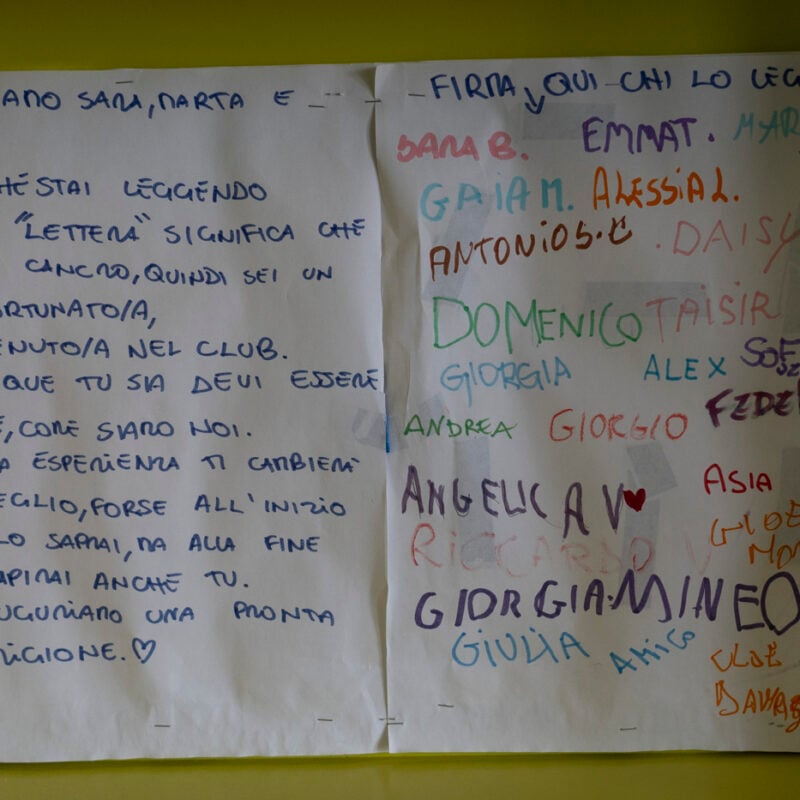 AMO SARA, MARTA E
HÉ STAI LEGGENDO
"LETTERA" SIGNIFICA CHÉ
CANCRO, QUINDI SEI UN
ORTUNATO/A,
ENUTO/A NEL CLUB.
QUE TU SIA DEVI ESSERE
E, COME SIAMO NOI.
A ESPERIENZA TI CAMBIERÀ
EGLIO, FORSE ALL'INIZIO
LO SAPRAI, MA ALLA FINE
APIRAI ANCHE TU.
UGURIAMO UNA PRONTA
RIGIONE. ♡
FIRMA QUI CHI LO LEG
SARA B. EMMA T. MAR
GAIA M. ALESSIA L.
ANTONIO S. DAISY
DOMENICO TAISIR
GIORGIA ALEX
ANDREA GIORGIO FEDE
ANGELICA V ♥ ASIA
RICCARDO V
GIORGIA MINEO
GIULIA AMICO